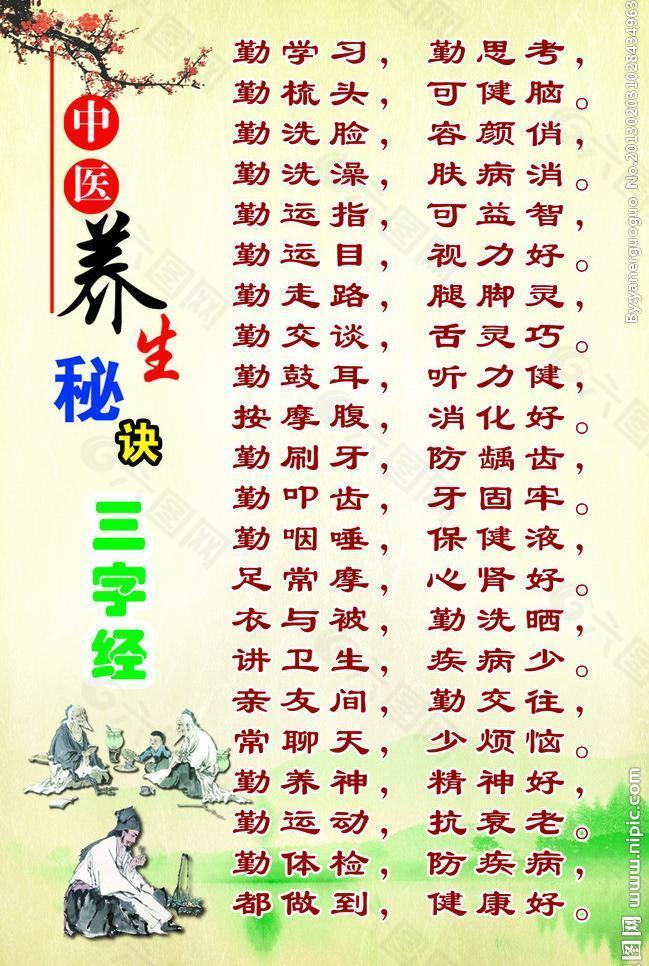 中医养生秘诀
三字经
勤学习，勤思考，
勤梳头，可健脑。
勤洗脸，容颜俏，
勤洗澡，肤病消。
勤运指，可益智，
勤运目，视力好。
勤走路，腿脚灵，
勤交谈，舌灵巧。
勤鼓耳，听力健，
按摩腹，消化好。
勤刷牙，防龋齿，
勤叩齿，牙固牢。
勤咽唾，保健液，
足常摩，心肾好。
衣与被，勤洗晒，
讲卫生，疾病少。
亲友间，勤交往，
常聊天，少烦恼。
勤养神，精神好，
勤运动，抗衰老。
勤体检，防疾病，
都做到，健康好。
By:yanerguoguo No.20130203102843496
图网 www.nipic.com
六图网